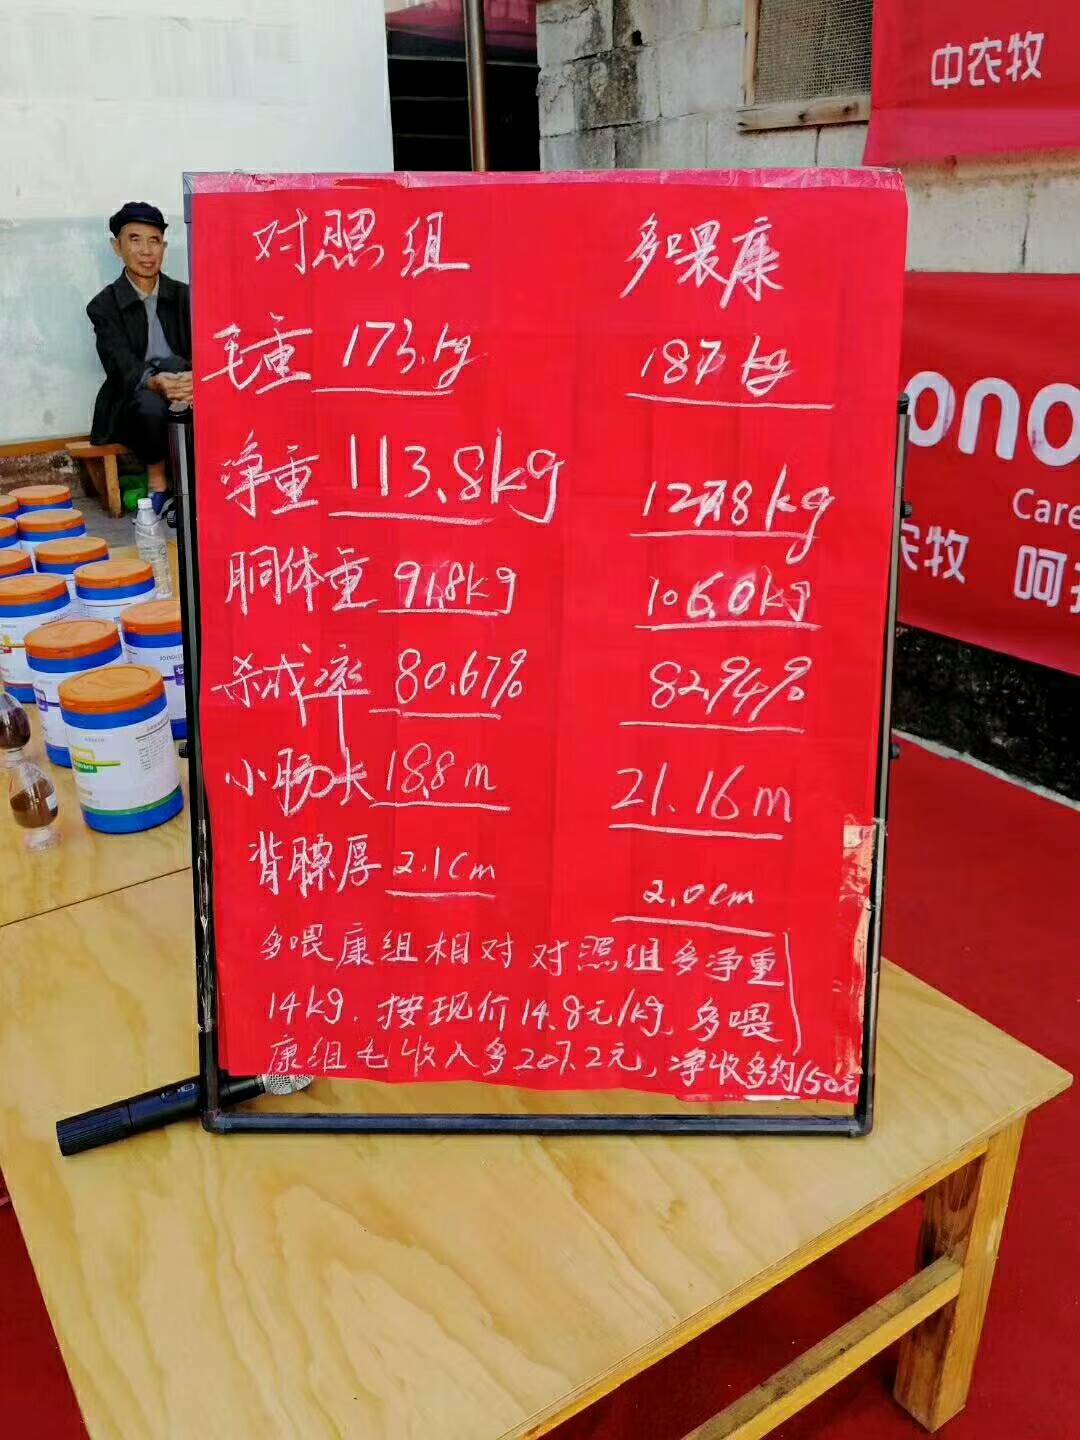 中农牧
对照组 多喂康
毛重 173.kg 187kg
净重 113.8kg 127.8kg
胴体重 91.8kg 106.0kg
杀成率 80.67% 82.94%
小肠长 18.8m 21.16m
背膘厚 2.1cm 2.0cm
多喂康组相对对照组多净重
14kg.按现价14.8元/kg,多喂
康组毛收入多207.2元,净收多约150元
ono
Care
农牧 呵